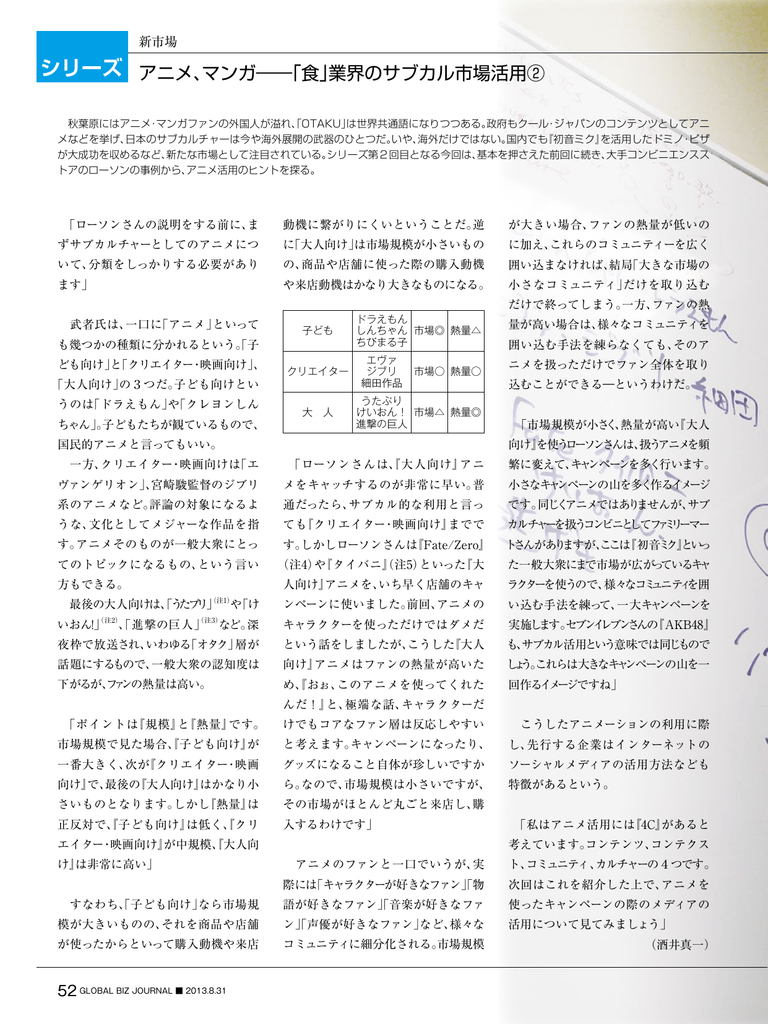 新市場
シリーズ
アニメ、マンガ——「食」業界のサブカル市場活用②
秋葉原にはアニメ・マンガファンの外国人が溢れ、「OTAKU」は世界共通語になりつつある。政府もクール・ジャパンのコンテンツとしてアニ
メなどを挙げ、日本のサブカルチャーは今や海外展開の武器のひとつだ。いや、海外だけではない。国内でも『初音ミク』を活用したドミノ・ピザ
が大成功を収めるなど、新たな市場として注目されている。シリーズ第２回目となる今回は、基本を押さえた前回に続き、大手コンビニエンスス
トアのローソンの事例から、アニメ活用のヒントを探る。
「ローソンさんの説明をする前に、ま
ずサブカルチャーとしてのアニメにつ
いて、分類をしっかりする必要があり
ます」
武者氏は、一口に「アニメ」といって
も幾つかの種類に分かれるという。「子
ども向け」と「クリエイター・映画向け」、
「大人向け」の３つだ。子ども向けとい
うのは「ドラえもん」や「クレヨンしん
ちゃん」。子どもたちが観ているもので、
国民的アニメと言ってもいい。
一方、クリエイター・映画向けは「エ
ヴァンゲリオン」、宮崎駿監督のジブリ
系のアニメなど。評論の対象になるよ
うな、文化としてメジャーな作品を指
す。アニメそのものが一般大衆にとっ
てのトピックになるもの、という言い
方もできる。
最後の大人向けは、「うたプリ」（注1）や「け
いおん！」（注2）、「進撃の巨人」（注3）など。深
夜枠で放送され、いわゆる「オタク」層が
話題にするもので、一般大衆の認知度は
下がるが、ファンの熱量は高い。
「ポイントは『規模』と『熱量』です。
市場規模で見た場合、『子ども向け』が
一番大きく、次が『クリエイター・映画
向け』で、最後の『大人向け』はかなり小
さいものとなります。しかし『熱量』は
正反対で、『子ども向け』は低く、『クリ
エイター・映画向け』が中規模、『大人向
け』は非常に高い」
すなわち、「子ども向け」なら市場規
模が大きいものの、それを商品や店舗
が使ったからといって購入動機や来店
動機に繋がりにくいということだ。逆
に「大人向け」は市場規模が小さいもの
の、商品や店舗に使った際の購入動機
や来店動機はかなり大きなものになる。
子ども ドラえもん しんちゃん ちびまる子 市場◎ 熱量△
クリエイター エヴァ ジブリ 細田作品 市場○ 熱量○
大　人 うたぷり けいおん！ 進撃の巨人 市場△ 熱量◎
「ローソンさんは、『大人向け』アニ
メをキャッチするのが非常に早い。普
通だったら、サブカル的な利用と言っ
ても『クリエイター・映画向け』までで
す。しかしローソンさんは『Fate/Zero』
（注4）や『タイバニ』（注5）といった『大
人向け』アニメを、いち早く店舗のキャ
ンペーンに使いました。前回、アニメの
キャラクターを使っただけではダメだ
という話をしましたが、こうした『大人
向け』アニメはファンの熱量が高いた
め、『おぉ、このアニメを使ってくれた
んだ！』と、極端な話、キャラクターだ
けでもコアなファン層は反応しやすい
と考えます。キャンペーンになったり、
グッズになること自体が珍しいですか
ら。なので、市場規模は小さいですが、
その市場がほとんど丸ごと来店し、購
入するわけです」
アニメのファンと一口でいうが、実
際には「キャラクターが好きなファン」「物
語が好きなファン」「音楽が好きなファ
ン」「声優が好きなファン」など、様々な
コミュニティに細分化される。市場規模
が大きい場合、ファンの熱量が低いの
に加え、これらのコミュニティーを広く
囲い込まなければ、結局「大きな市場の
小さなコミュニティ」だけを取り込む
だけで終ってしまう。一方、ファンの熱
量が高い場合は、様々なコミュニティを
囲い込む手法を練らなくても、そのア
ニメを扱っただけでファン全体を取り
込むことができる―というわけだ。
「市場規模が小さく、熱量が高い『大人
向け』を使うローソンさんは、扱うアニメを頻
繁に変えて、キャンペーンを多く行います。
小さなキャンペーンの山を多く作るイメージ
です。同じくアニメではありませんが、サブ
カルチャーを扱うコンビニとしてファミリーマー
トさんがありますが、ここは『初音ミク』といっ
た一般大衆にまで市場が広がっているキャ
ラクターを使うので、様々なコミュニティを囲
い込む手法を練って、一大キャンペーンを
実施します。セブンイレブンさんの『AKB48』
も、サブカル活用という意味では同じもので
しょう。これらは大きなキャンペーンの山を一
回作るイメージですね」
こうしたアニメーションの利用に際
し、先行する企業はインターネットの
ソーシャルメディアの活用方法なども
特徴があるという。
「私はアニメ活用には『4C』があると
考えています。コンテンツ、コンテクス
ト、コミュニティ、カルチャーの４つです。
次回はこれを紹介した上で、アニメを
使ったキャンペーンの際のメディアの
活用について見てみましょう」
（酒井真一）
細田
52 GLOBAL BIZ JOURNAL ■ 2013.8.31